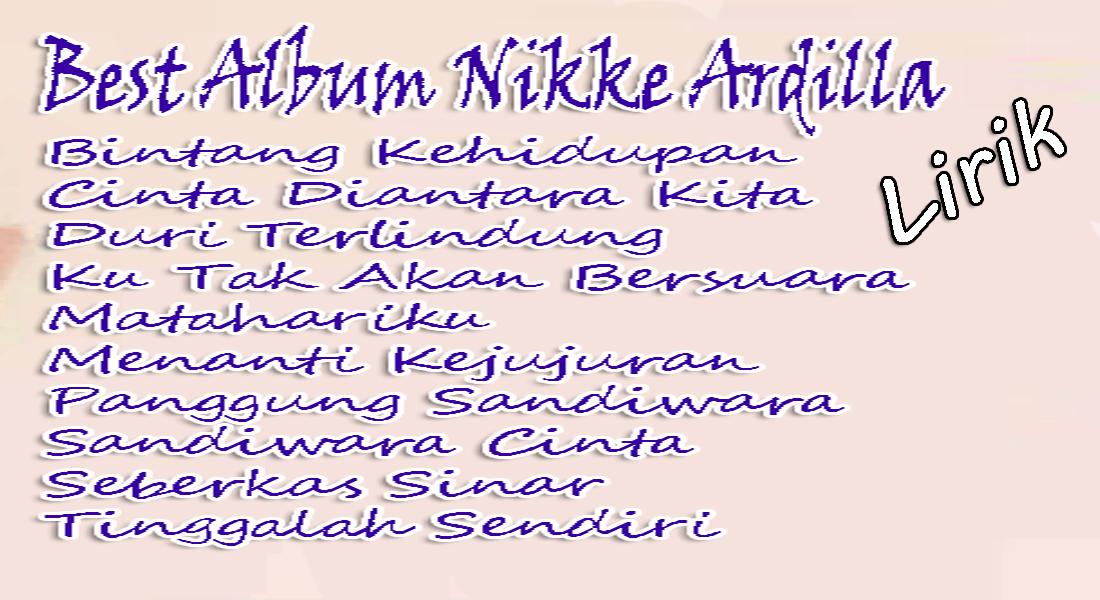 Best Album Nikke Ardilla
Lirik
Bintang Kehidupan
Cinta Diantara Kita
Duri Terlindung
Ku Tak Akan Bersuara
Matahariku
Menanti Kejujuran
Panggung Sandiwara
Sandiwara Cinta
Seberkas Sinar
Tinggalah Sendiri